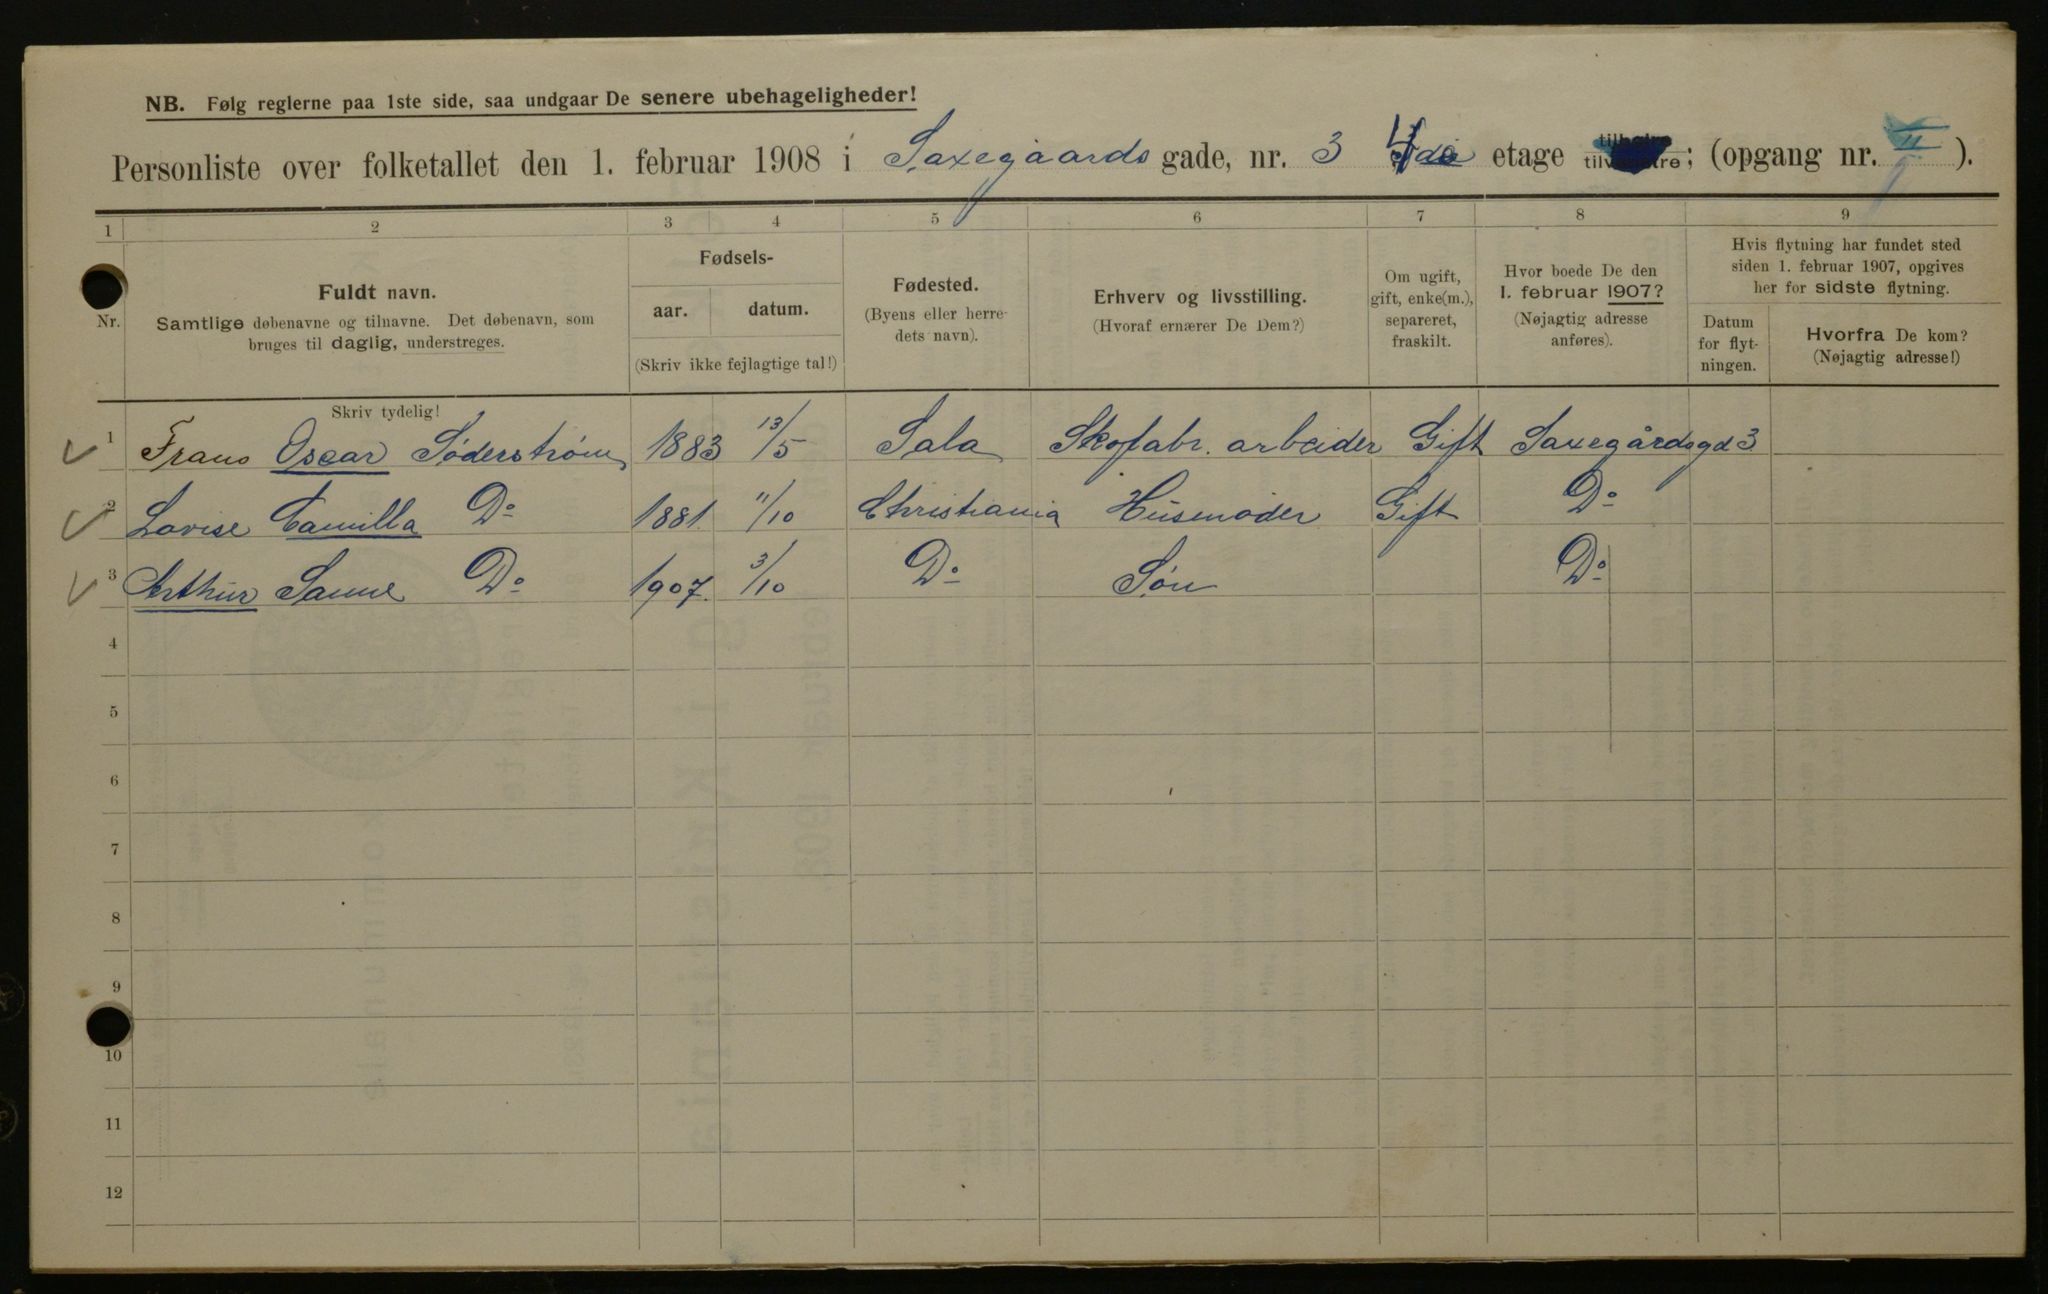 NB. Følg reglerne paa 1ste side, saa undgaar De senere ubehageligheder!
Personliste over folketallet den 1. februar 1908 i Saxegaards gade, nr. 3 4de etage ; (opgang nr. II ).
1 2 3 4 5 6 7 8 9
Nr.
Fuldt navn.
Samtlige døbenavne og tilnavne. Det døbenavn, som
bruges til daglig, understreges.
Fødsels-
aar. datum.
(Skriv ikke fejlagtige tal!)
Fødested.
(Byens eller herre-
dets navn).
Erhverv og livsstilling.
(Hvoraf ernærer De Dem?)
Om ugift,
gift, enke(m.),
separeret,
fraskilt.
Hvor boede De den
1. februar 1907?
(Nøjagtig adresse
anføres).
Hvis flytning har fundet sted
siden 1. februar 1907, opgives
her for sidste flytning.
Datum
for flyt-
ningen.
Hvorfra De kom?
(Nøjagtig adresse!)
Skriv tydelig!
1 Frans Oscar Søderstrøm 1883 13/5 Sala Skofabr. arbeider Gift Saxegårdsgd 3
2 Lovise Camilla Do 1881. 11/10 Christiania Husmoder Gift Do
3 Arthur Sanne Do 1907. 3/10 Do Søn Do
4
5
6
7
8
9
10
11
12